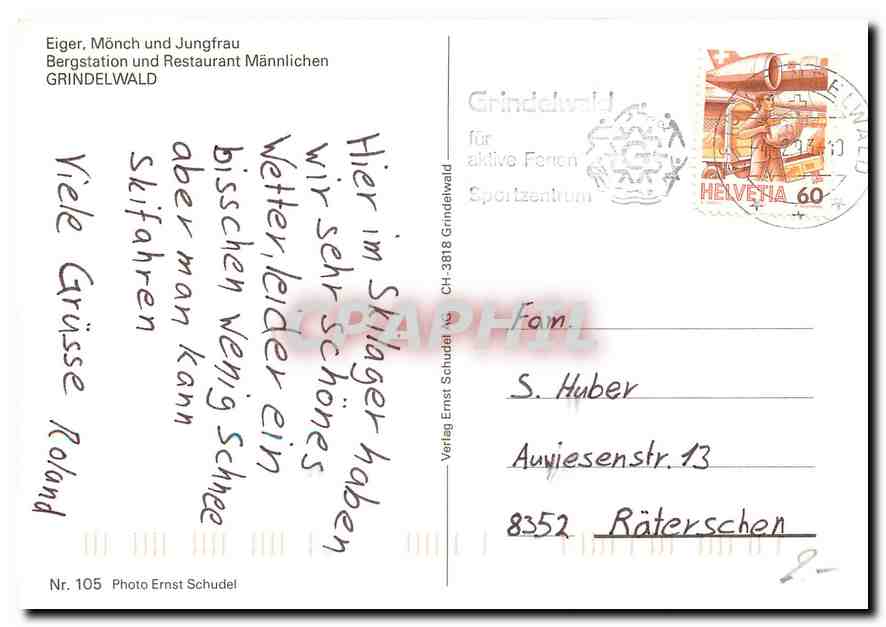 Eiger, Mönch und Jungfrau
Bergstation und Restaurant Männlichen
GRINDELWALD
Hier im Skilager haben
wir sehr schönes
Wetter, leider ein
bisschen wenig Schnee
aber man kann
Skifahren
Viele Grüsse Roland
Nr. 105 Photo Ernst Schudel
Verlag Ernst Schudel AG CH-3818 Grindelwald
Grindelwald
für
aktive Ferien
Sportzentrum
G
HELVETIA 60
CPAPHIL
Fam.
S. Huber
Auwiesenstr. 13
8352 Räterschen
2.-